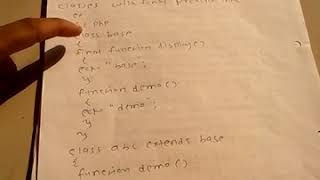 classes with final
ex
php
class base
{
final function display()
{
echo "base";
}
function demo()
{
echo "demo";
}
}
class abc extends base
{
function demo()